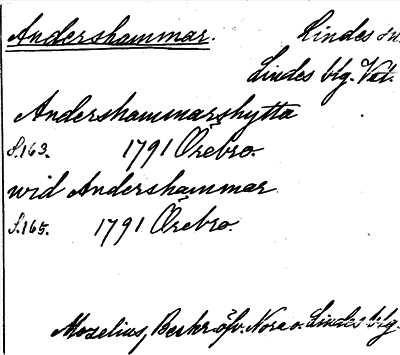 Andershammar. Lindes sn.
Lindes blg. Vstm.
Andershammarshytta
S.163. 1791 Örebro.
wid Andershammar
S.165. 1791 Örebro.
Mozelius, Beskr. öfv. Nora o. Lindes blg.